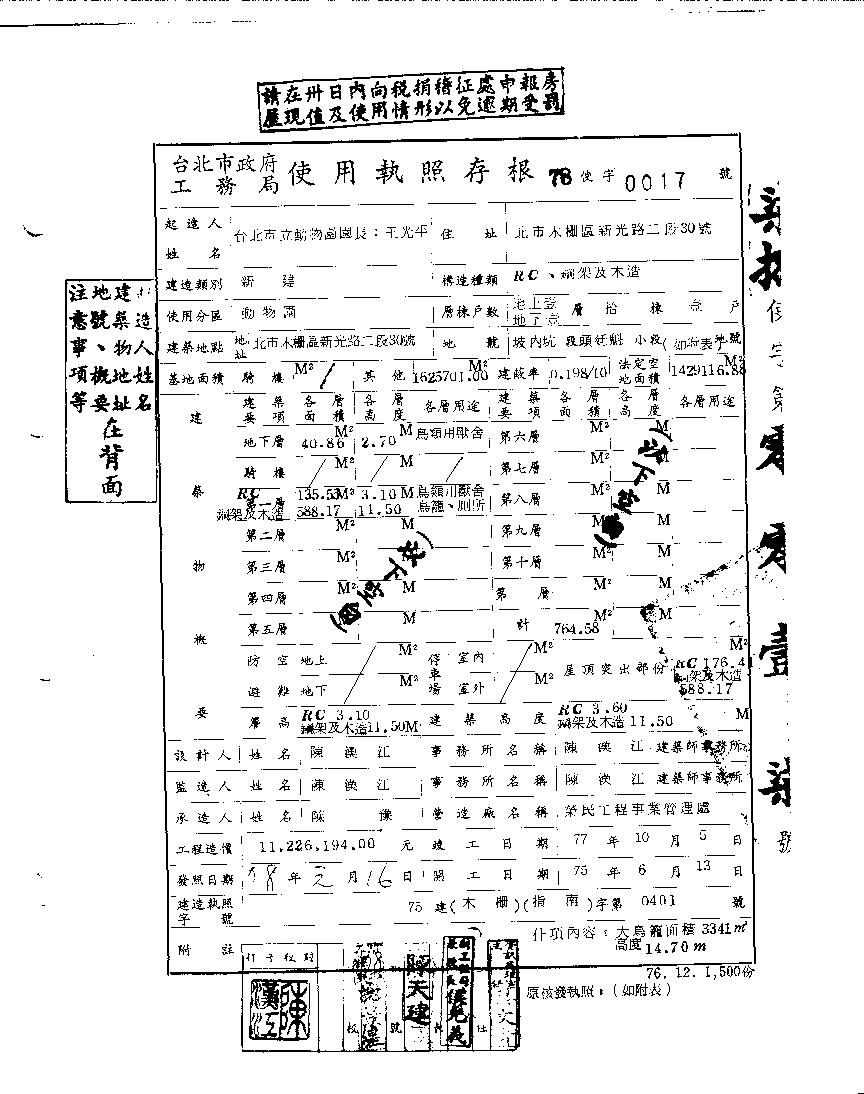 請在卅日內向稅捐稽征處申報房
屋現值及使用情形以免逾期受罰
台北市政府
工務局 使用執照存根 78 使字 0017 號
起造人姓名 台北市立動物園園長：王光平 住址 北市木柵區新光路二段30號
建造類別 新建 構造種類 RC、鋼架及木造
使用分區 動物園 層棟戶數 地上壹 地下壹 層 拾 棟 壹 戶
建築地點 地址 北市木柵區新光路二段30號 地號 坡內坑 段頭廷魁 小段(如附表)地號
基地面積 騎樓 M² 其他 1625701.00 建蔽率 0.198/10 法定空地面積 1429116.88 M²
建築要項 各層面積 各層高度 各層用途 建築要項 各層面積 各層高度 各層用途
地下層 40.86 M² 2.70 M 鳥類用獸舍 第六層 M² M
騎樓 M² M 第七層 M² M
RC 第一層 135.53 M² 3.10 M 鳥類用獸舍 第八層 M² M
鋼架及木造 588.17 11.50 鳥籠、廁所
第二層 M² M 第九層 M² M
第三層 M² M 第十層 M² M
第四層 M² M 第 層 M² M
第五層 M² M 計 764.58 M²
(以下空白)
(以下空白)
建築物概要
防空避難 地上 M² 地下 M² 停車場 室內 M² 室外 M² 屋頂突出部份 RC 176.41 M² 鋼架及木造 588.17
層高 RC 3.10 鋼架及木造11.50M 建築高度 RC 3.60 鋼架及木造11.50 M
設計人 姓名 陳漢江 事務所名稱 陳漢江 建築師事務所
監造人 姓名 陳漢江 事務所名稱 陳漢江 建築師事務所
承造人 姓名 陳豫 營造廠名稱 榮民工程事業管理處
工程造價 11,226,194.00 元 竣工日期 77 年 10 月 5 日
發照日期 78 年 元 月 16 日 開工日期 75 年 6 月 13 日
建造執照字號 75 建(木柵)(指南)字第 0401 號
附註
什項內容：大鳥籠面積 3341㎡
高度 14.70m
76. 12. 1,500份
原核發執照：(如附表)
注意事項等
地號、概要
建築物地址
起造人姓名
在背面
陳漢江
陳天建
使字第零零壹柒號